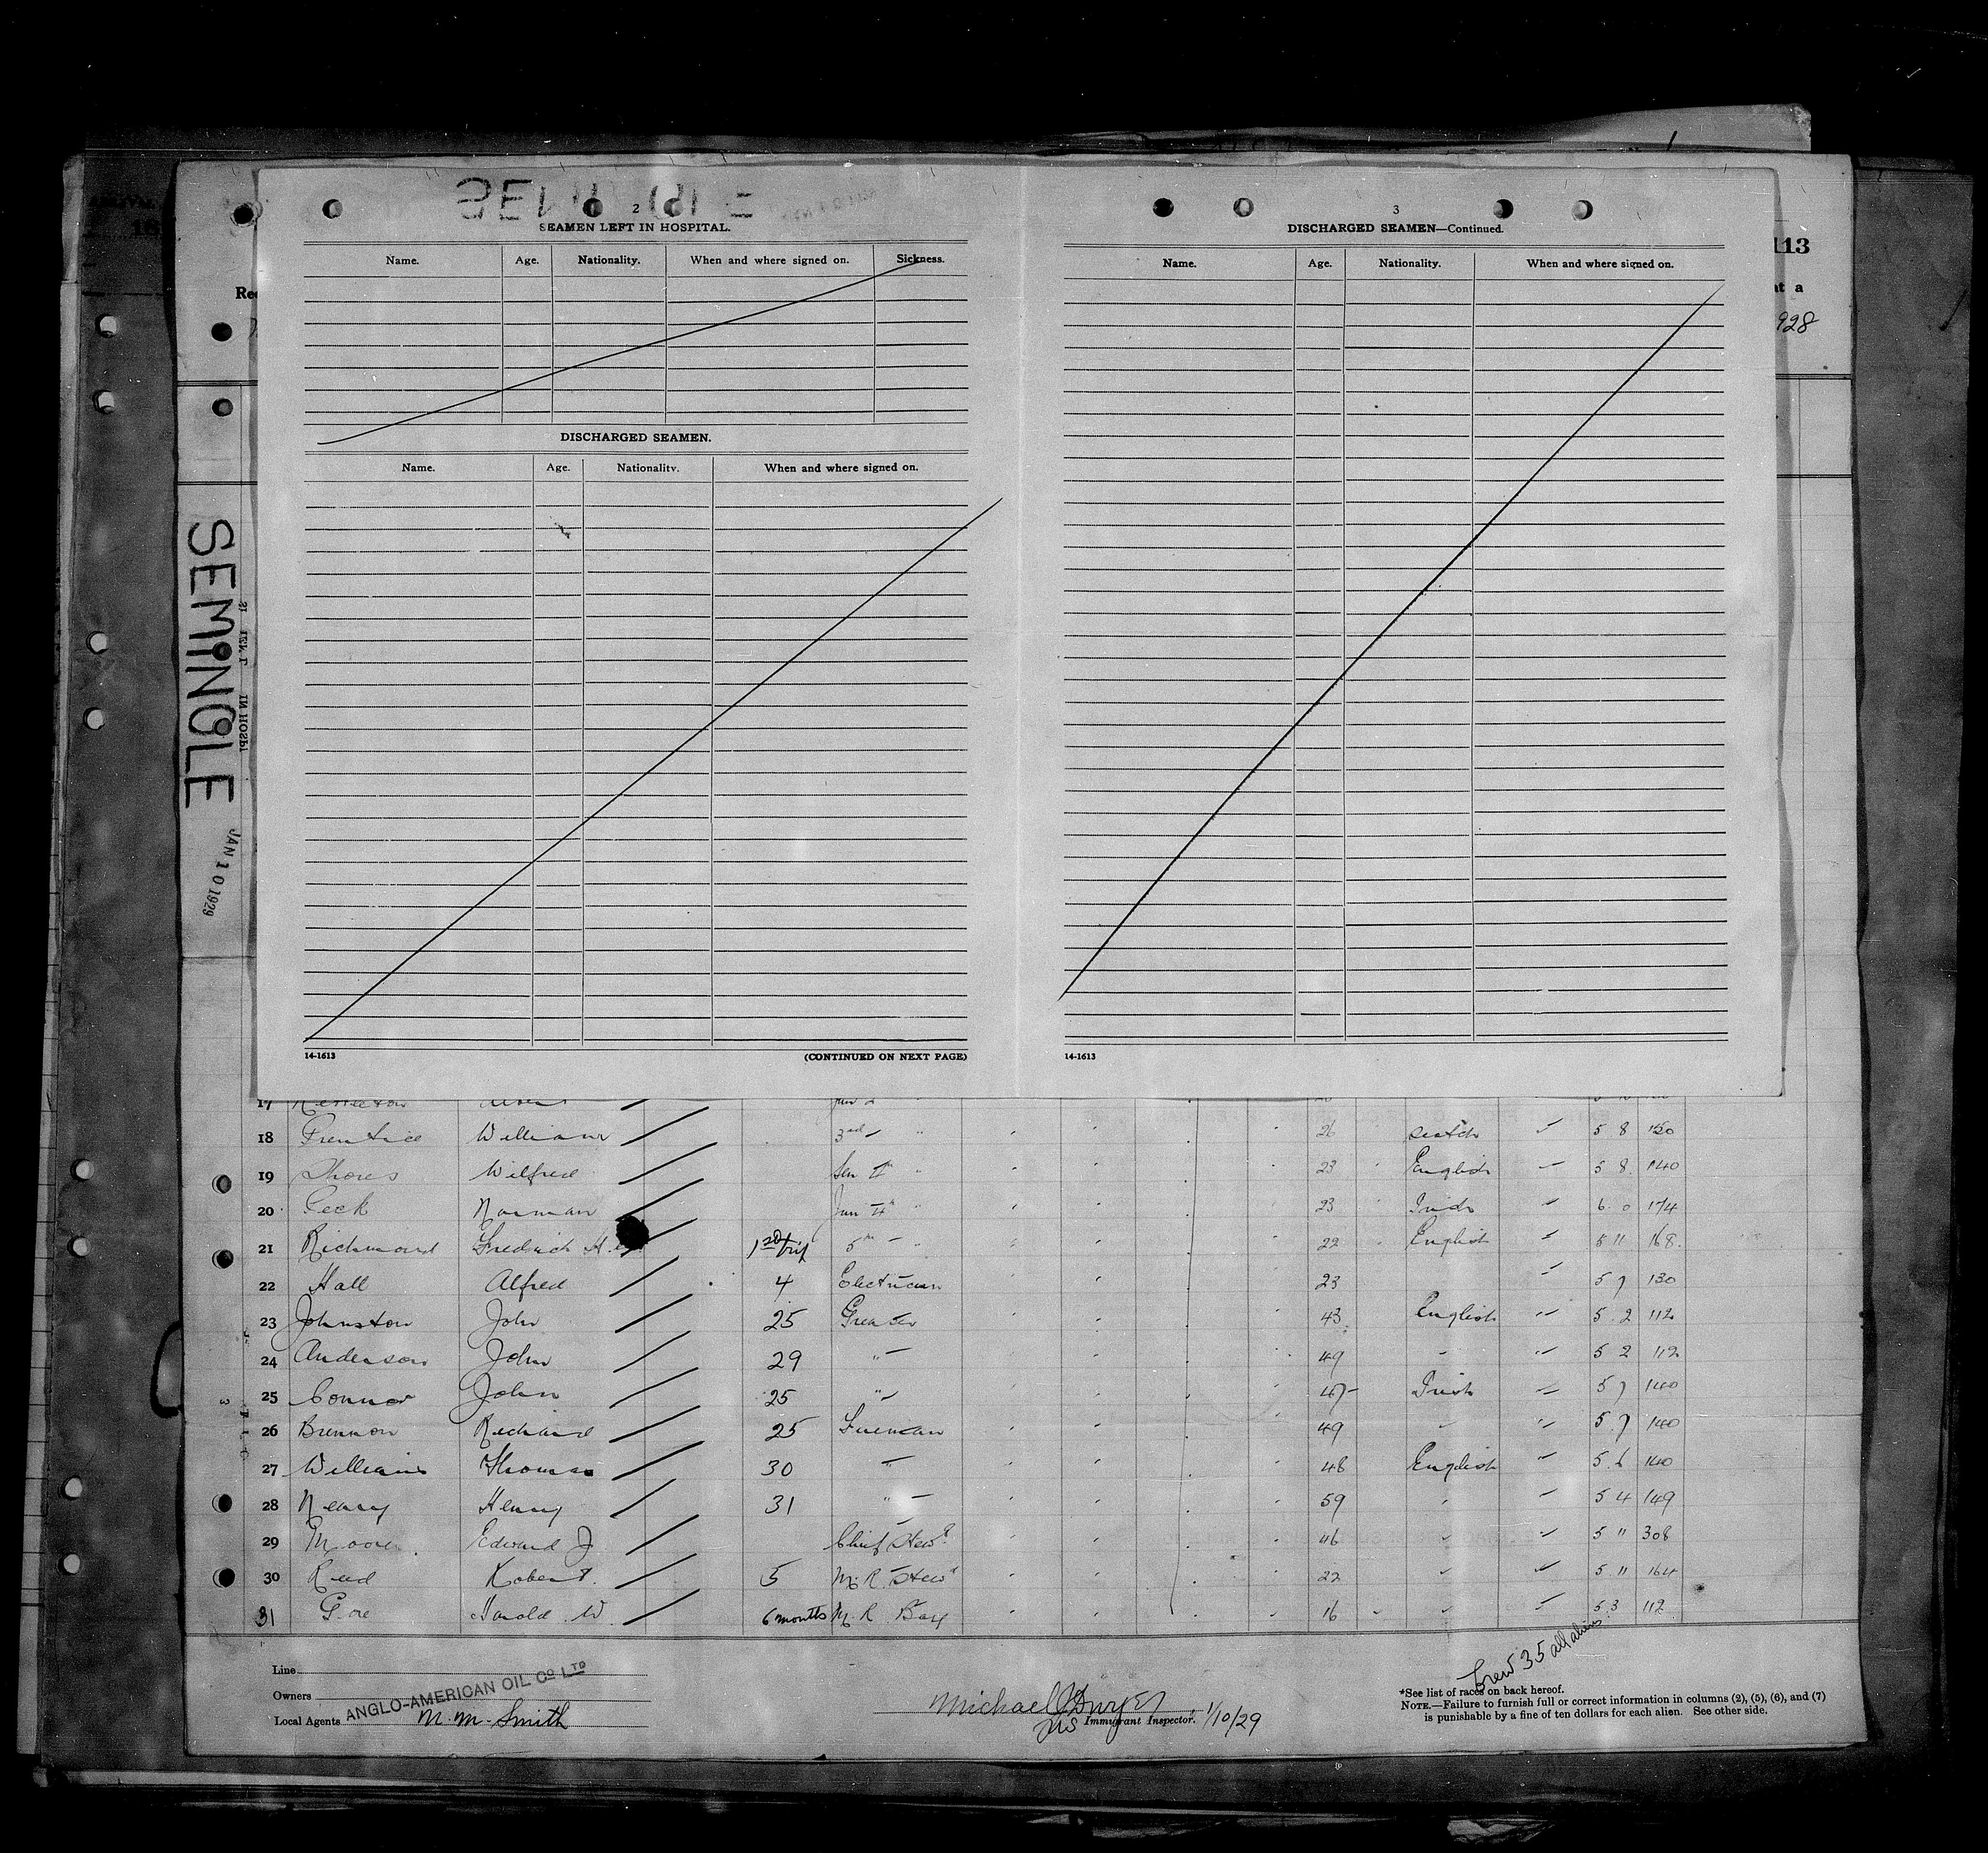 2
SEAMEN LEFT IN HOSPITAL.
Name. Age. Nationality. When and where signed on. Sickness.
DISCHARGED SEAMEN.
Name. Age. Nationality. When and where signed on.
14-1613 (CONTINUED ON NEXT PAGE)
3
DISCHARGED SEAMEN—Continued.
Name. Age. Nationality. When and where signed on.
14-1613
113
at a
928
SEMINOLE
JAN 10 1929
17
18 Prentice William 3rd 26 Scotch 5 8 150
19 Shores Wilfred Sen 4th 23 English 5 8 140
20 Peck Norman Jun 4th 23 Irish 6 0 174
21 Richmond Fredrick H. 1st trip 5th 22 English 5 11 168
22 Hall Alfred 4 Electrician 23 5 7 130
23 Johnston John 25 Greaser 43 English 5 2 112
24 Anderson John 29 " 49 5 2 112
25 Connor John 25 " 47 Irish 5 7 140
26 Brennon Richard 25 Fireman 49 " 5 7 140
27 Williams Thomas 30 " 48 English 5 6 140
28 Henry 31 " 59 " 5 4 149
29 Moore Edward J Chief Stewd 46 " 5 11 308
30 Reid Robert 5 M. R. Stewd 22 " 5 11 164
31 Gore Harold W. 6 months M. R. Boy 16 " 5 3 112
Line
Owners ANGLO-AMERICAN OIL CO LTD
Local Agents M. M. Smith
Michael Dwyer
Immigrant Inspector. 1/10/29
Crew 35 all aliens
*See list of races on back hereof.
NOTE.—Failure to furnish full or correct information in columns (2), (5), (6), and (7)
is punishable by a fine of ten dollars for each alien. See other side.